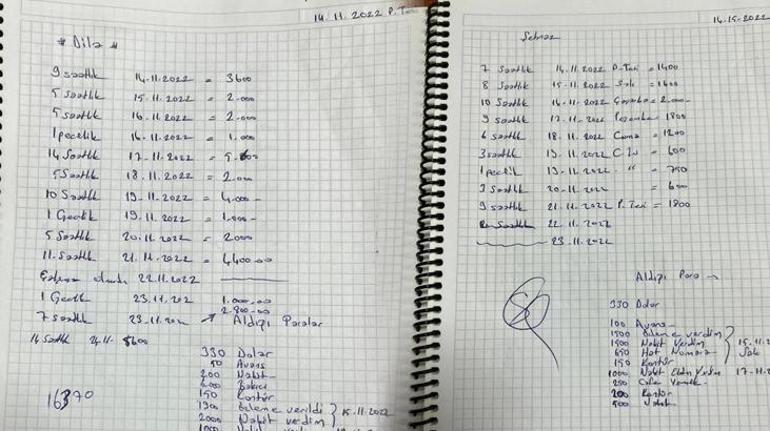 14.11.2022 P.Tesi
* Dila *
9 saatlik 14.11.2022 = 3600
5 saatlik 15.11.2022 = 2.000
5 saatlik 16.11.2022 = 2.000
1 pecelik 16.11.2022 = 1.000
14 saatlik 17-11-2022 = 5.600
5 saatlik 18.11.2022 = 2.000
10 saatlik 19-11-2022 = 4.000-
1 Gecelik 19.11.2022 = 1.000-
5 saatlik 20.11.2022 = 2000
11. saatlik 21.11.2022 = 4400.00
22.11.2022
1 Gecelik 23.11.202 1.000.00
2.800.00
7 saatlik 23-11.202 → Aldıpı Paralar
14 saatlik 24.11- 5600
330 Dolar
50 Avans
200 Nakit
200
150 Kontür
ödeme verildi 15.11.2022
2000 Nakit verdim
16370
14-15-2022
7 saatlik 14.11.2022 P.Tesi = 1400
8 saatlik 15-11-2022 Salı = 1600
10 saatlik 16-11-2022 Çaşamba = 2.000-
9 saatlik 17-11-2022 Pesembe 1800
6 saatlik 18.11.2022 Cuma = 1200
3 saatlik 19.11.2022 = 600
1 pecelik 19-11-2022 " = 750
3 saatlik 20-11-2022 = 600
9 saatlik 21.11.2022 P.Tesi = 1800
saatlik 22-11-2022
23.11.2022
Aldıpı Para
330 Dolar
100 Avans
1500 ödeme verdim
1500 Nakit Verdim 15.11.2
650 Hat Numara Salı
150 Kontür
1000 Nakit 17-11-2
250 Yemek
200 Kontür
500 Nakit